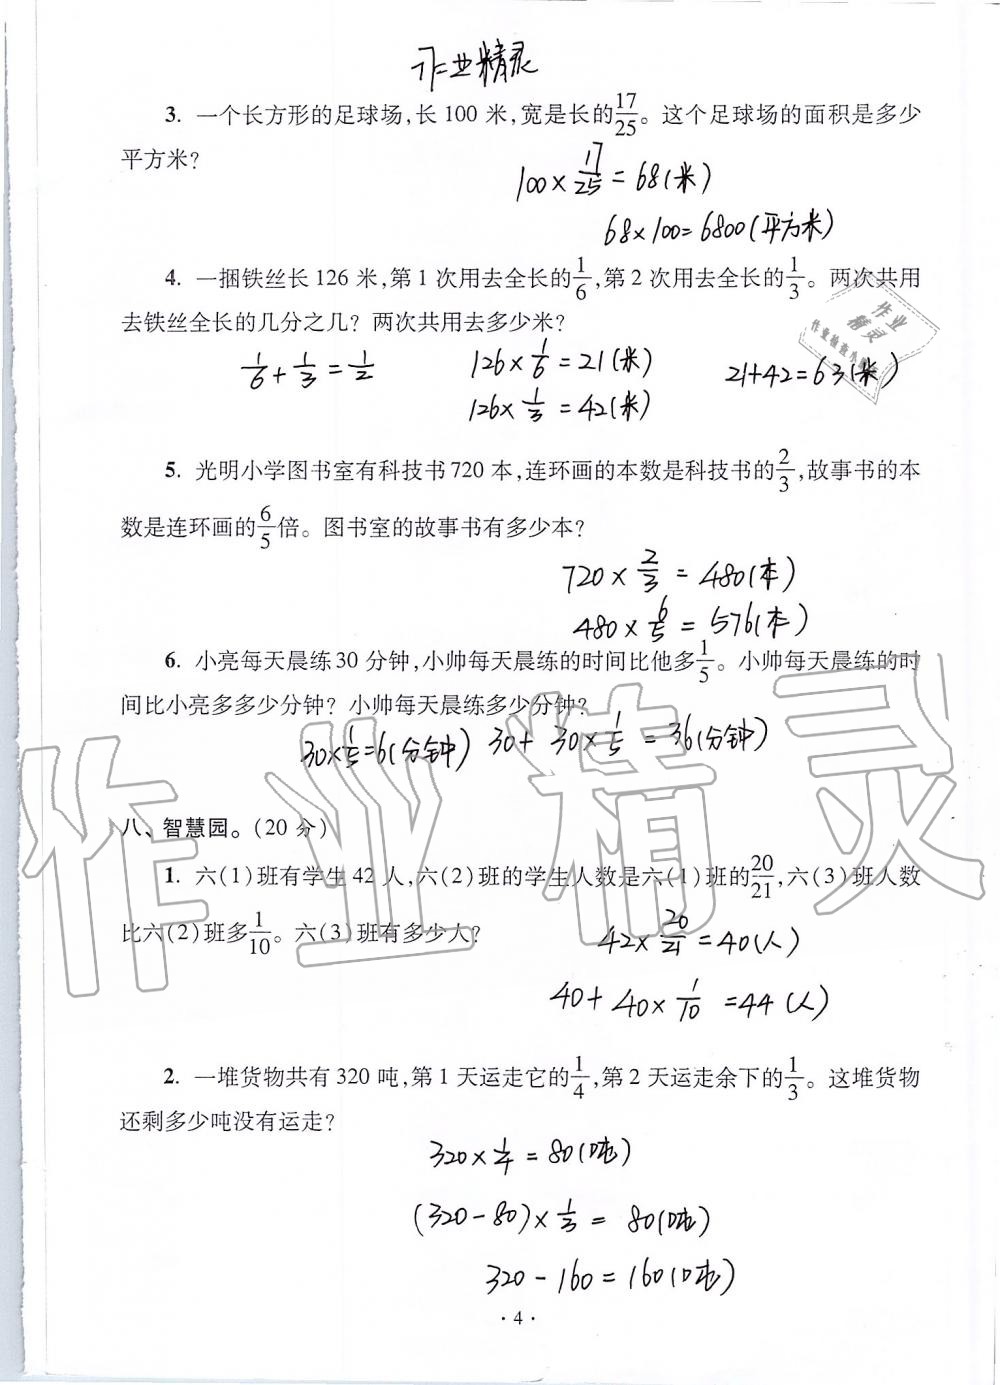 作业精灵
3. 一个长方形的足球场,长100米,宽是长的17/25。这个足球场的面积是多少
平方米?
100×17/25=68(米)
68×100=6800(平方米)
4. 一捆铁丝长126米,第1次用去全长的1/6,第2次用去全长的1/3。两次共用
去铁丝全长的几分之几? 两次共用去多少米?
作业
精灵
1/6+1/3=1/2 126×1/6=21(米) 21+42=63(米)
126×1/3=42(米)
5. 光明小学图书室有科技书720本,连环画的本数是科技书的2/3,故事书的本
数是连环画的6/5倍。图书室的故事书有多少本?
720×2/3=480(本)
480×6/5=576(本)
6. 小亮每天晨练30分钟,小帅每天晨练的时间比他多1/5。小帅每天晨练的时
间比小亮多多少分钟? 小帅每天晨练多少分钟?
30×1/5=6(分钟) 30+30×1/5=36(分钟)
作业精灵
八、智慧园。(20分)
1. 六(1)班有学生42人,六(2)班的学生人数是六(1)班的20/21,六(3)班人数
比六(2)班多1/10。六(3)班有多少人?
42×20/21=40(人)
40+40×1/10=44(人)
2. 一堆货物共有320吨,第1天运走它的1/4,第2天运走余下的1/3。这堆货物
还剩多少吨没有运走?
320×1/4=80(吨)
(320-80)×1/3=80(吨)
320-160=160(吨)
·4·